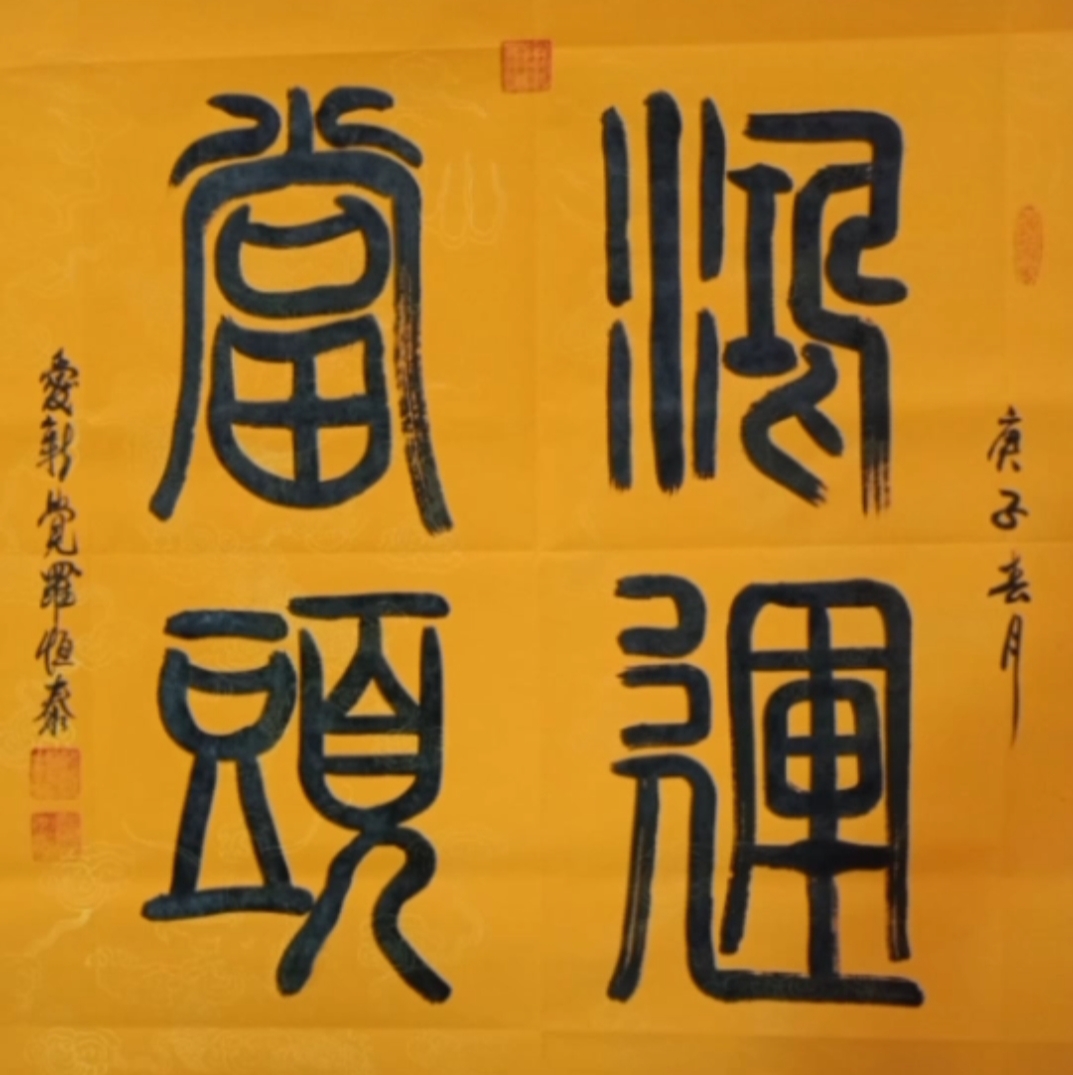 庚子春月
鴻運
當頭
愛新覺羅恒泰